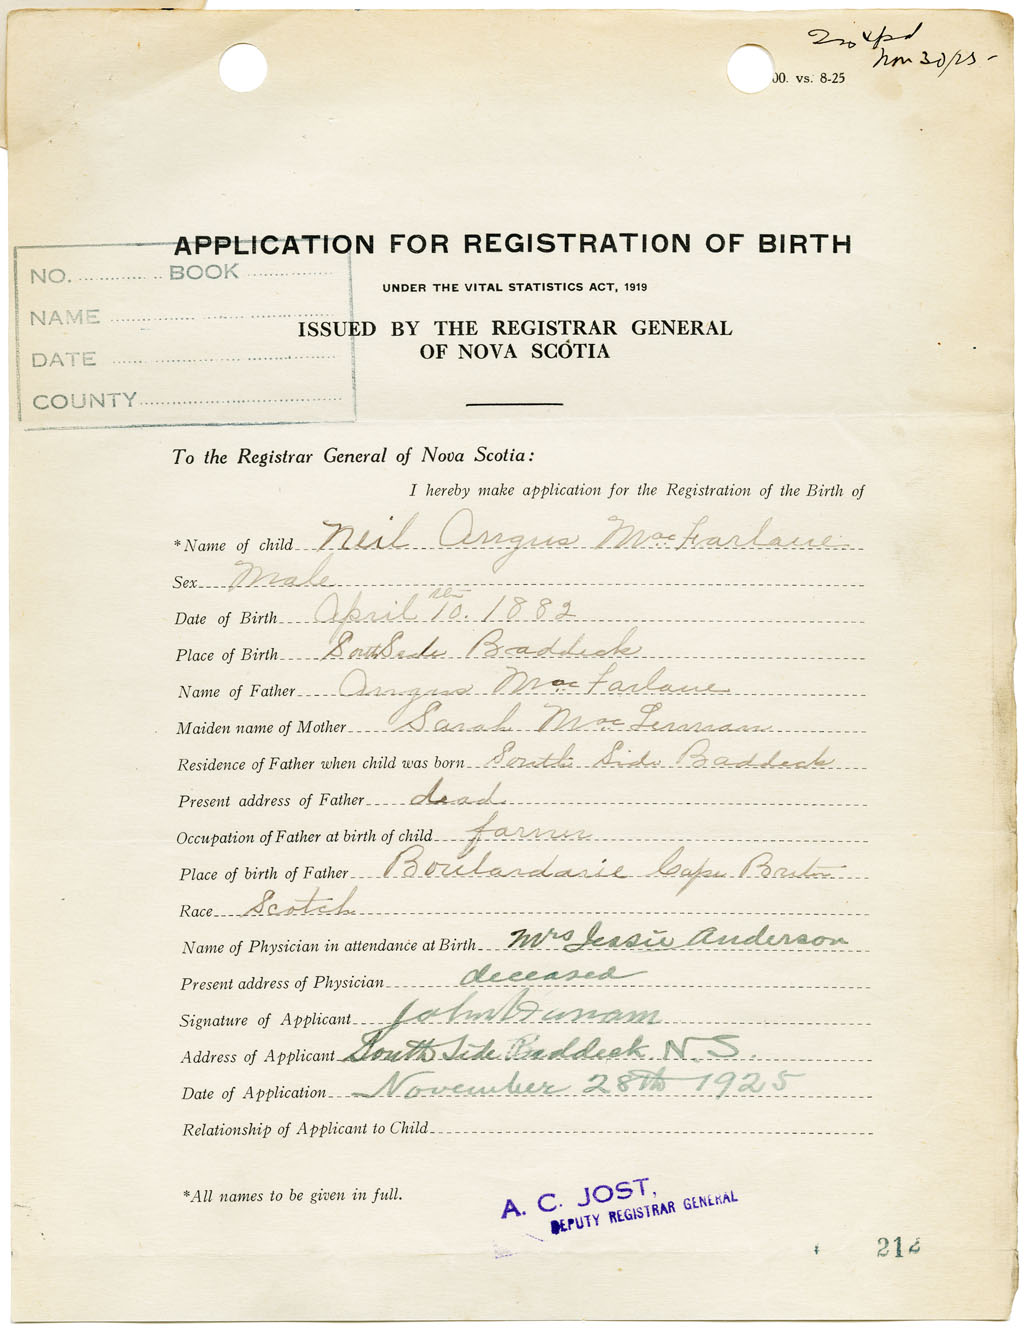 Nov 30/25 -
00. vs. 8-25
APPLICATION FOR REGISTRATION OF BIRTH
UNDER THE VITAL STATISTICS ACT, 1919
ISSUED BY THE REGISTRAR GENERAL
OF NOVA SCOTIA
NO. BOOK
NAME
DATE
COUNTY
To the Registrar General of Nova Scotia:
I hereby make application for the Registration of the Birth of
*Name of child Neil Angus MacFarlane
Sex Male
Date of Birth April 10. 1882
Place of Birth South Side Baddeck
Name of Father Angus MacFarlane
Maiden name of Mother Sarah MacLennan
Residence of Father when child was born South Side Baddeck
Present address of Father dead
Occupation of Father at birth of child farmer
Place of birth of Father Boulardarie Cape Breton
Race Scotch
Name of Physician in attendance at Birth Mrs Jessie Anderson
Present address of Physician deceased
Signature of Applicant John
Address of Applicant South Side Baddeck N.S.
Date of Application November 28th 1925
Relationship of Applicant to Child
*All names to be given in full.
A. C. JOST,
DEPUTY REGISTRAR GENERAL
212